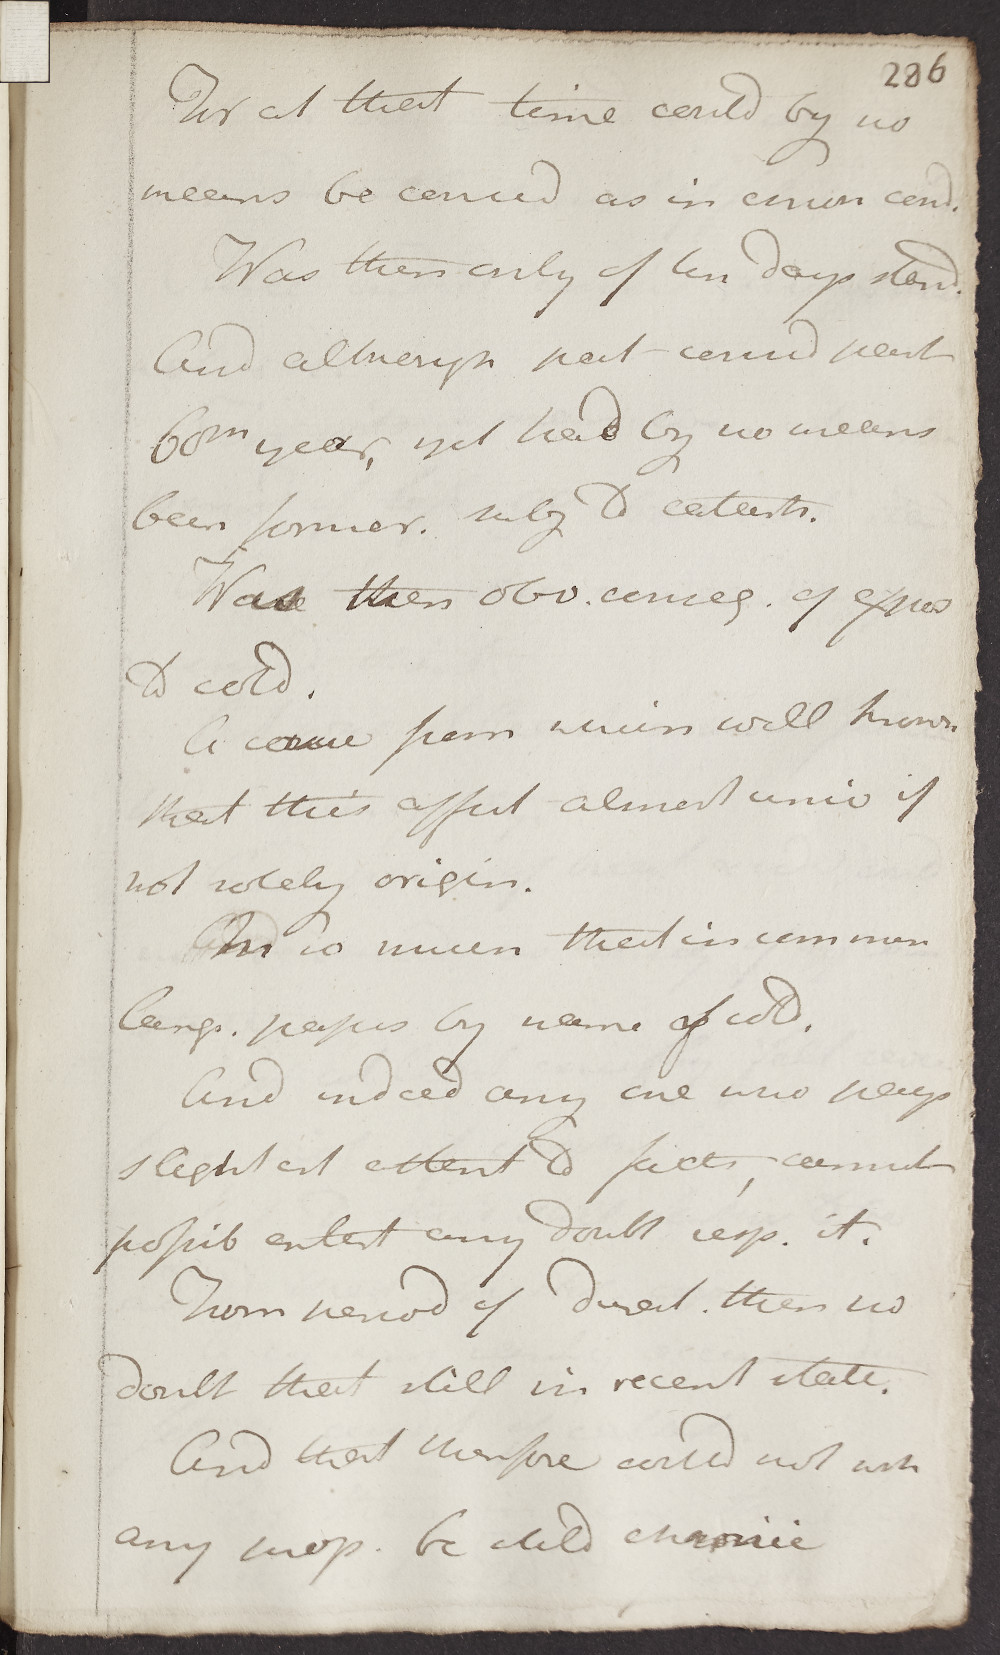 286
For at that time could by no
means be consid as in chron cond.
Was then only of ten days stand.
And although pat consid past
60th year, yet had by no means
been former. subj to catarrh.
Was then obv. conseq. of expos
to cold.
A cause from which well known
that this affect almost univ if
not solely origin.
And so much that in common
lang. passes by name of cold.
And indeed any one who pays
slightest attent to facts, cannot
possib entert any doubt resp. it.
From period of durat. then no
doubt that still in recent state.
And that therefore could not with
any prop. be stild chronic